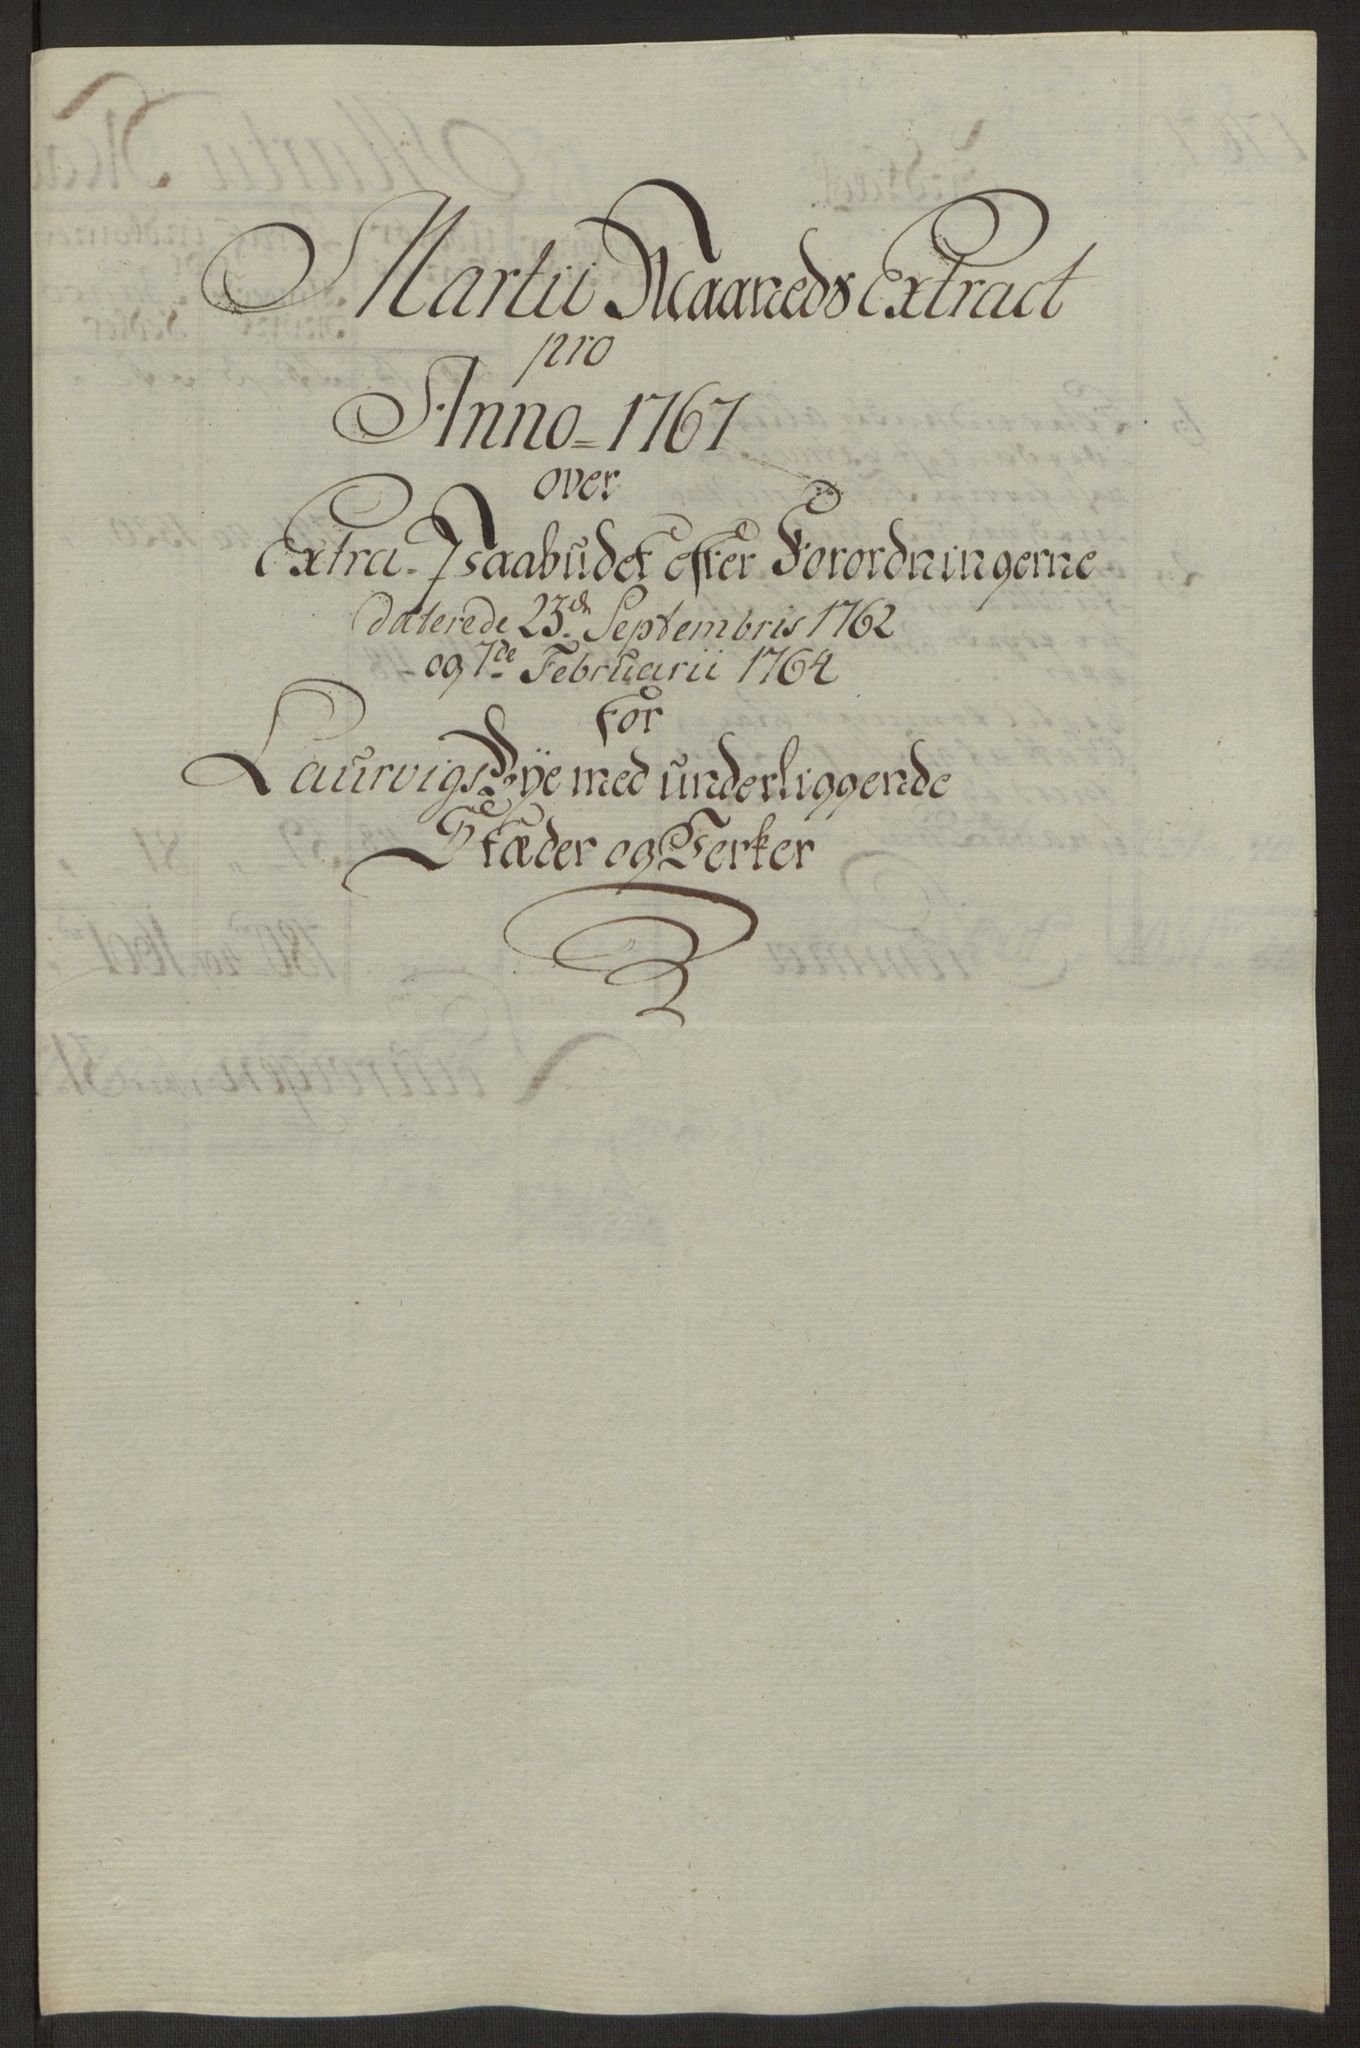 Martii Maaneds Extract
pro
Anno 1767
over
Extra-Paabudet efter Forordningerne
daterede 23de Septembris 1762
og 7de Februarii 1764
for
Laurvigs Bye med underliggende
Stæder og Ferker